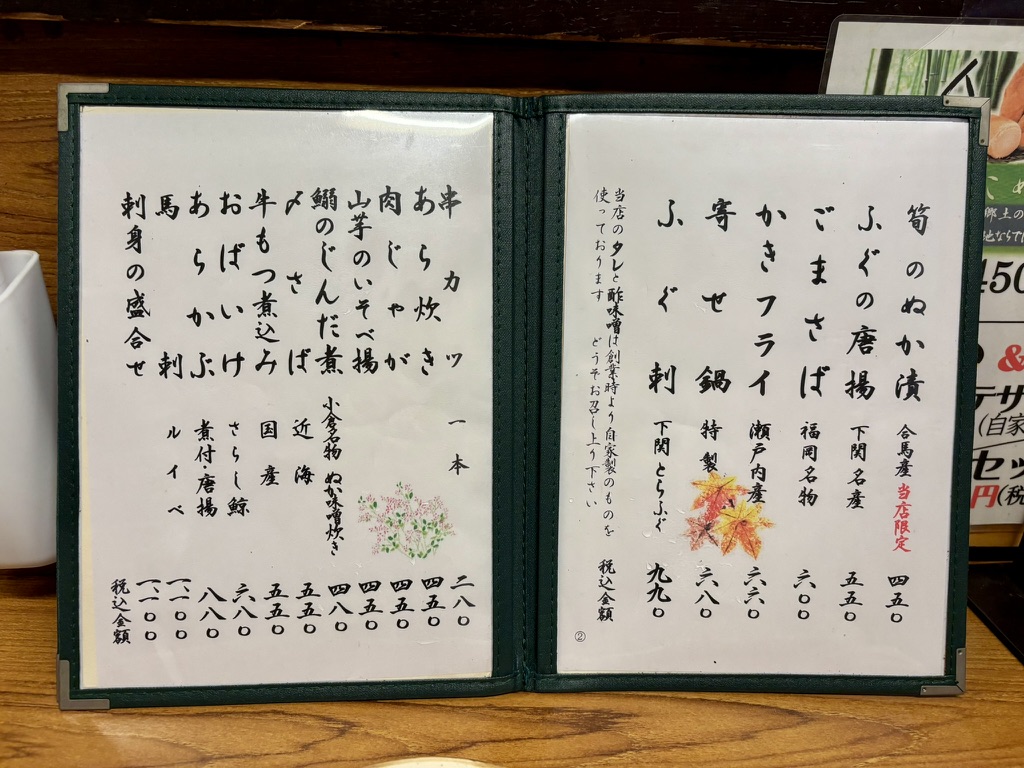 筍のぬか漬 合馬産 当店限定 四五〇
ふぐの唐揚 下関名産 五五〇
ごまさば 福岡名物 六〇〇
かきフライ 瀬戸内産 六六〇
寄せ鍋 特製 六八〇
ふぐ刺 下関とらふぐ 九九〇
当店のタレと酢味噌は創業時より自家製のものを
使っております どうぞお召し上り下さい
税込金額
②
串カツ 一本 二八〇
あら炊き 四五〇
肉じゃが 四五〇
山芋のいそべ揚 四五〇
鰯のじんだ煮 小倉名物 ぬか味噌炊き 四八〇
〆さば 近海 五五〇
牛もつ煮込み 国産 五五〇
おばいけ さらし鯨 六八〇
あらかぶ 煮付・唐揚 八八〇
馬刺 ルイベ 一、一〇〇
刺身の盛合せ 一、一〇〇
税込金額
郷土の
450
&
デザ
(自家
セッ
円(税